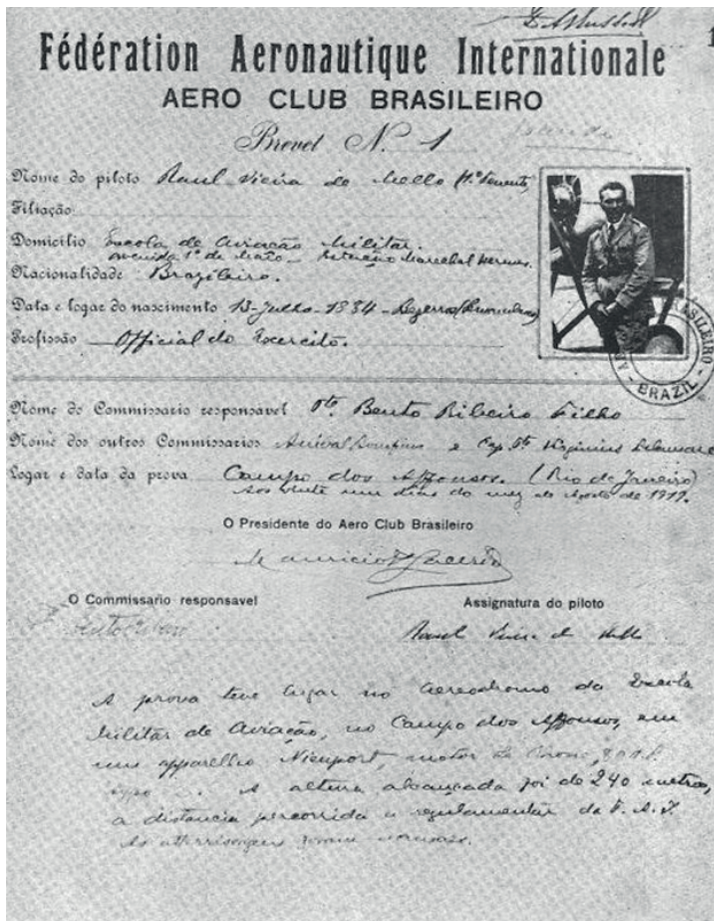 1
Fédération Aeronautique Internationale
AERO CLUB BRASILEIRO
Brevet N. 1
Nome do piloto Raul Vieira de Mello (1º Tenente)
Filiação
Domicilio Escola de Aviação Militar.
avenida 1º de Maio - Marechal Hermes.
Nacionalidade Brazileiro.
Data e logar do nascimento 13-Julho-1884-Bezerros
Profissão Official do Exercito.
BRASILEIRO - BRAZIL -
Nome do Commissario responsavel Bento Ribeiro Filho
Nome dos outros Commissarios e Cap. Virginius Delamare
Logar e data da prova Campo dos Affonsos. (Rio de Janeiro)
aos vinte um dias do mez de Agosto de 1919.
O Presidente do Aero Club Brasileiro
Mauricio Lacerda
O Commissario responsavel Assignatura do piloto
Bento Ribeiro Raul Vieira de Mello
A prova teve lugar no aerodromo da Escola
Militar de Aviação, no Campo dos Affonsos, em
um apparelho Nieuport, motor Le Rhone, 80 H.P.
typo . A altura alcançada foi de 240 metros,
a distancia percorrida a regulamentar da F.A.I.
As atterrissagens foram normaes.